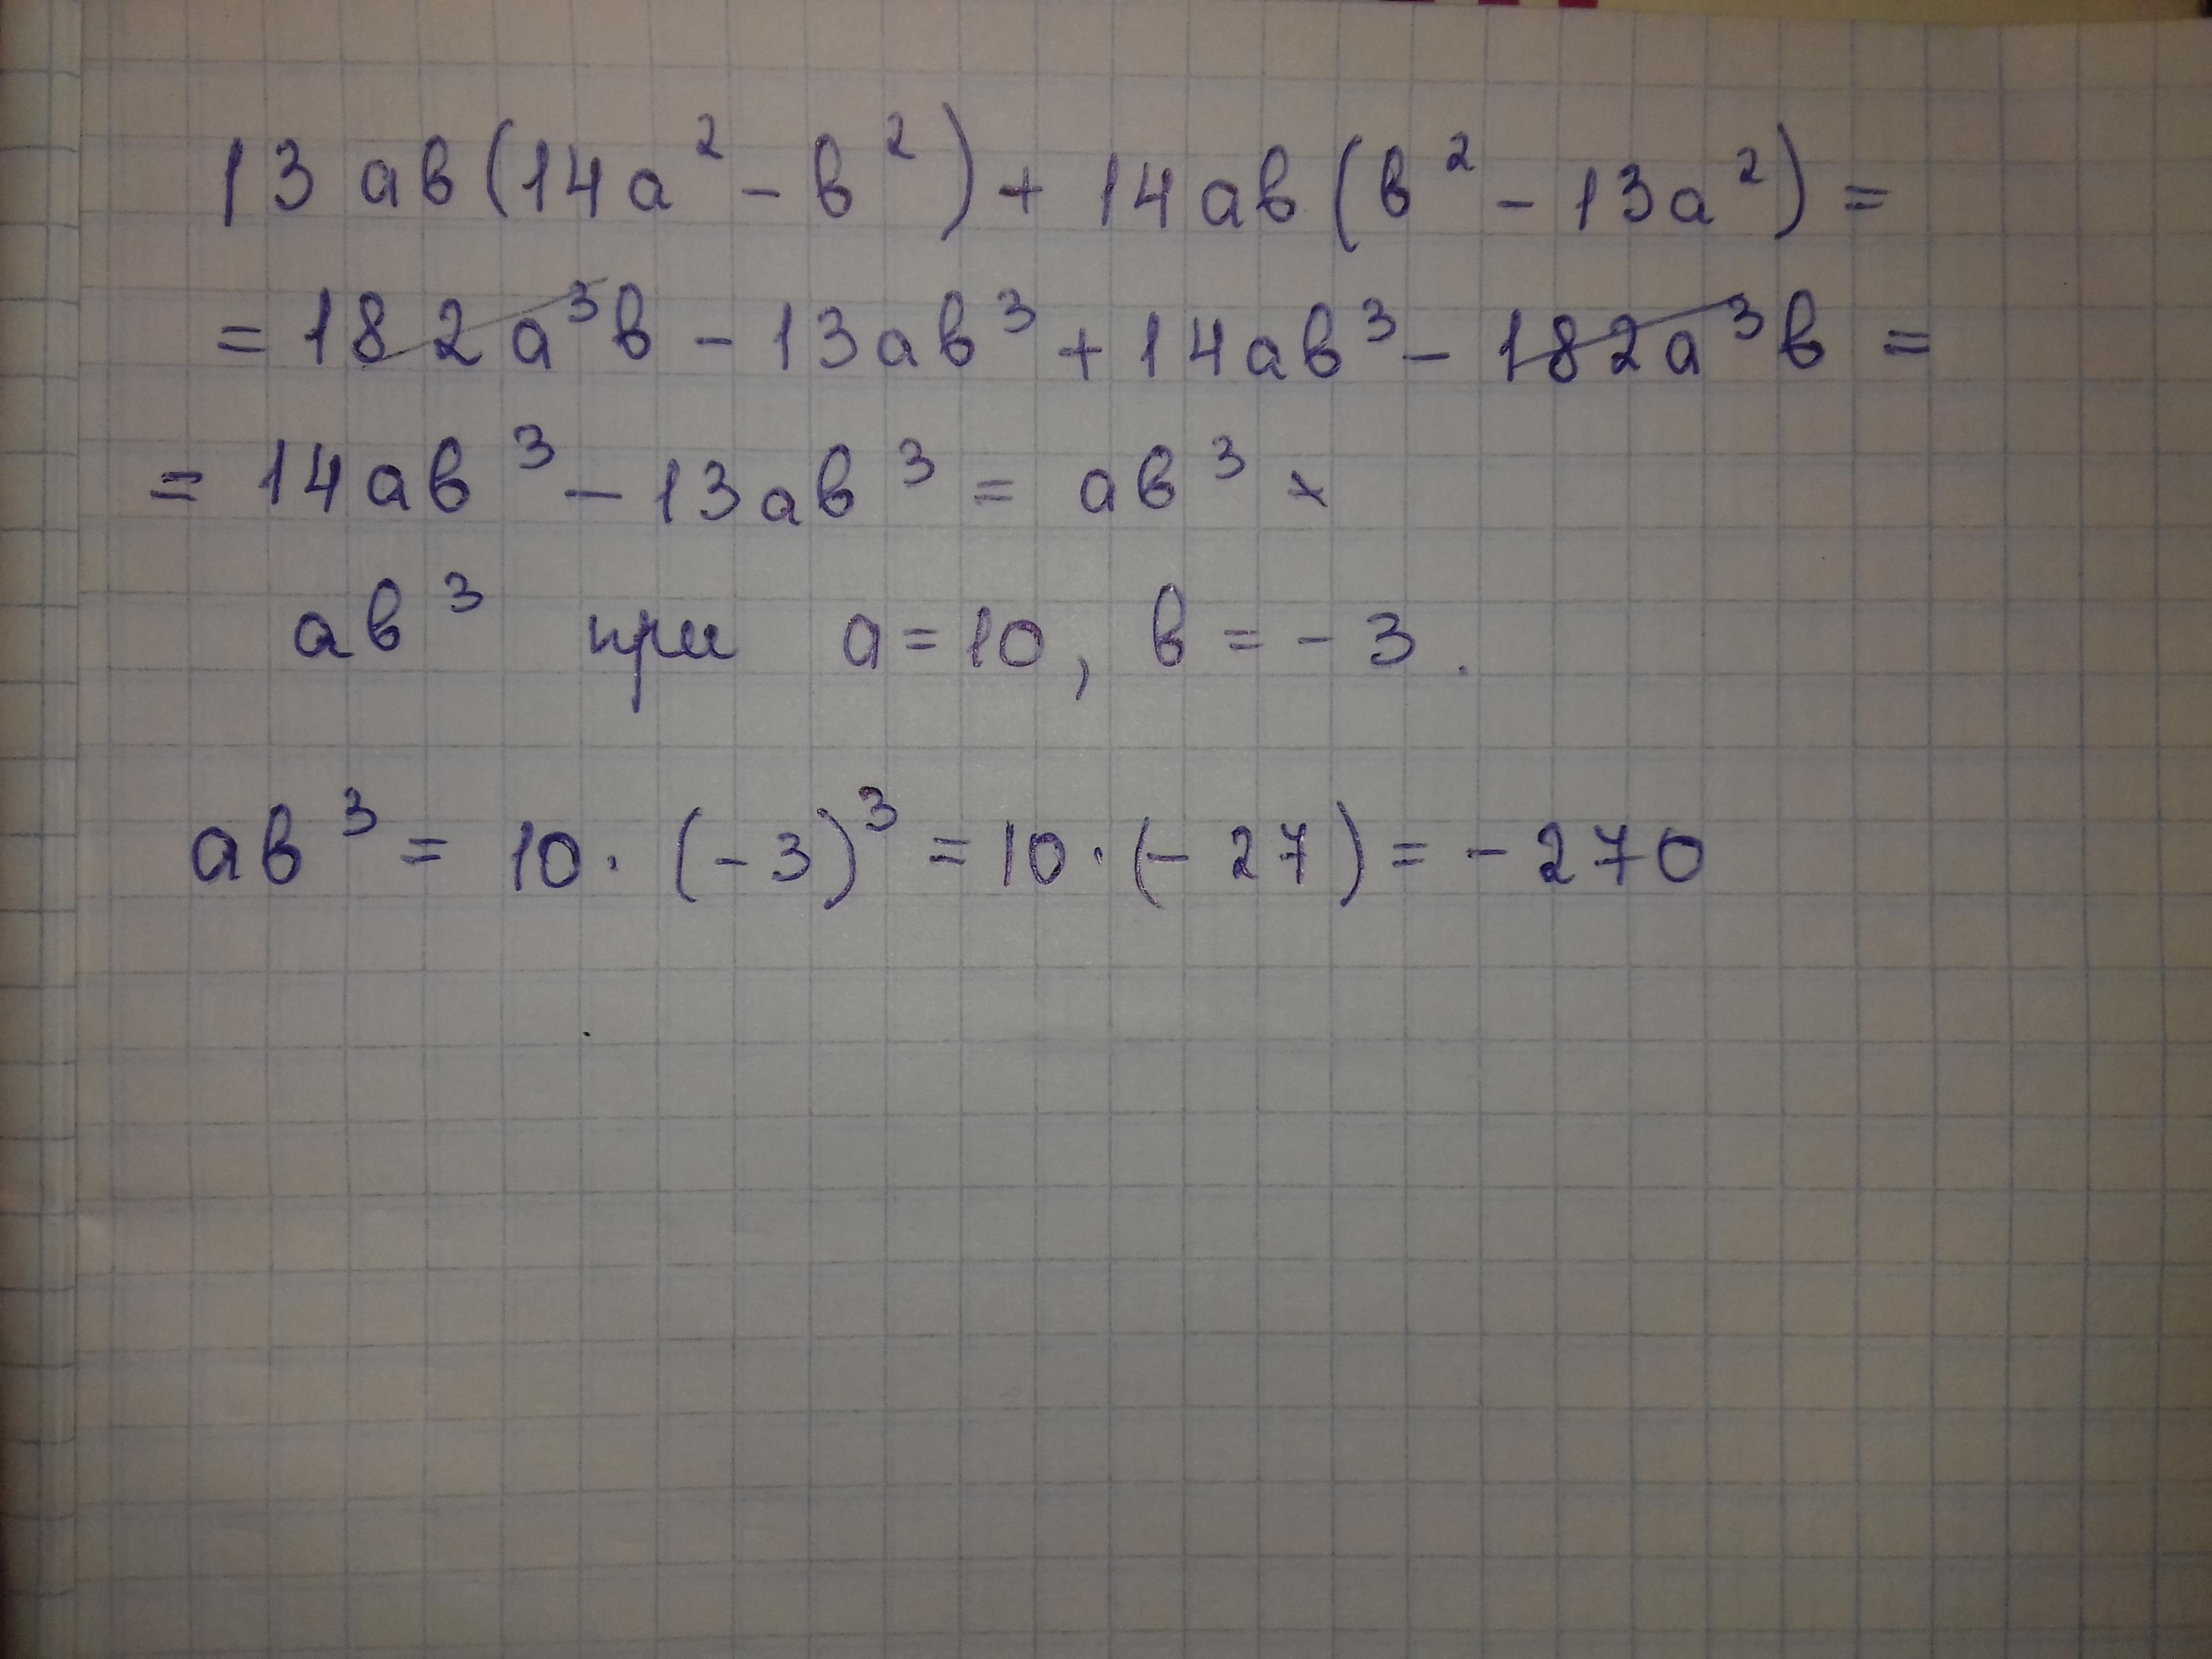 13 ав(14а² - в²) + 14ав(в² - 13а²) =
= 182а³в - 13ав³ + 14ав³ - 182а³в =
= 14ав³ - 13ав³ = ав³ ×
ав³ при а = 10, в = - 3.
ав³ = 10 · (- 3)³ = 10 · (- 27) = - 270